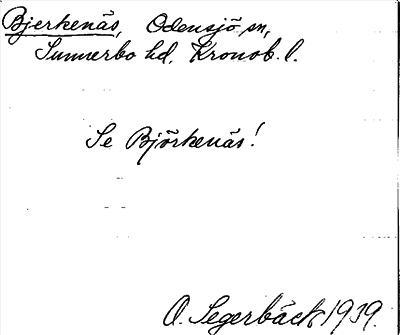 Bjerkenäs, Odensjö sn,
Sunnerbo hd. Kronob. l.
Se Björkenäs!
O. Segerbäck 1939.